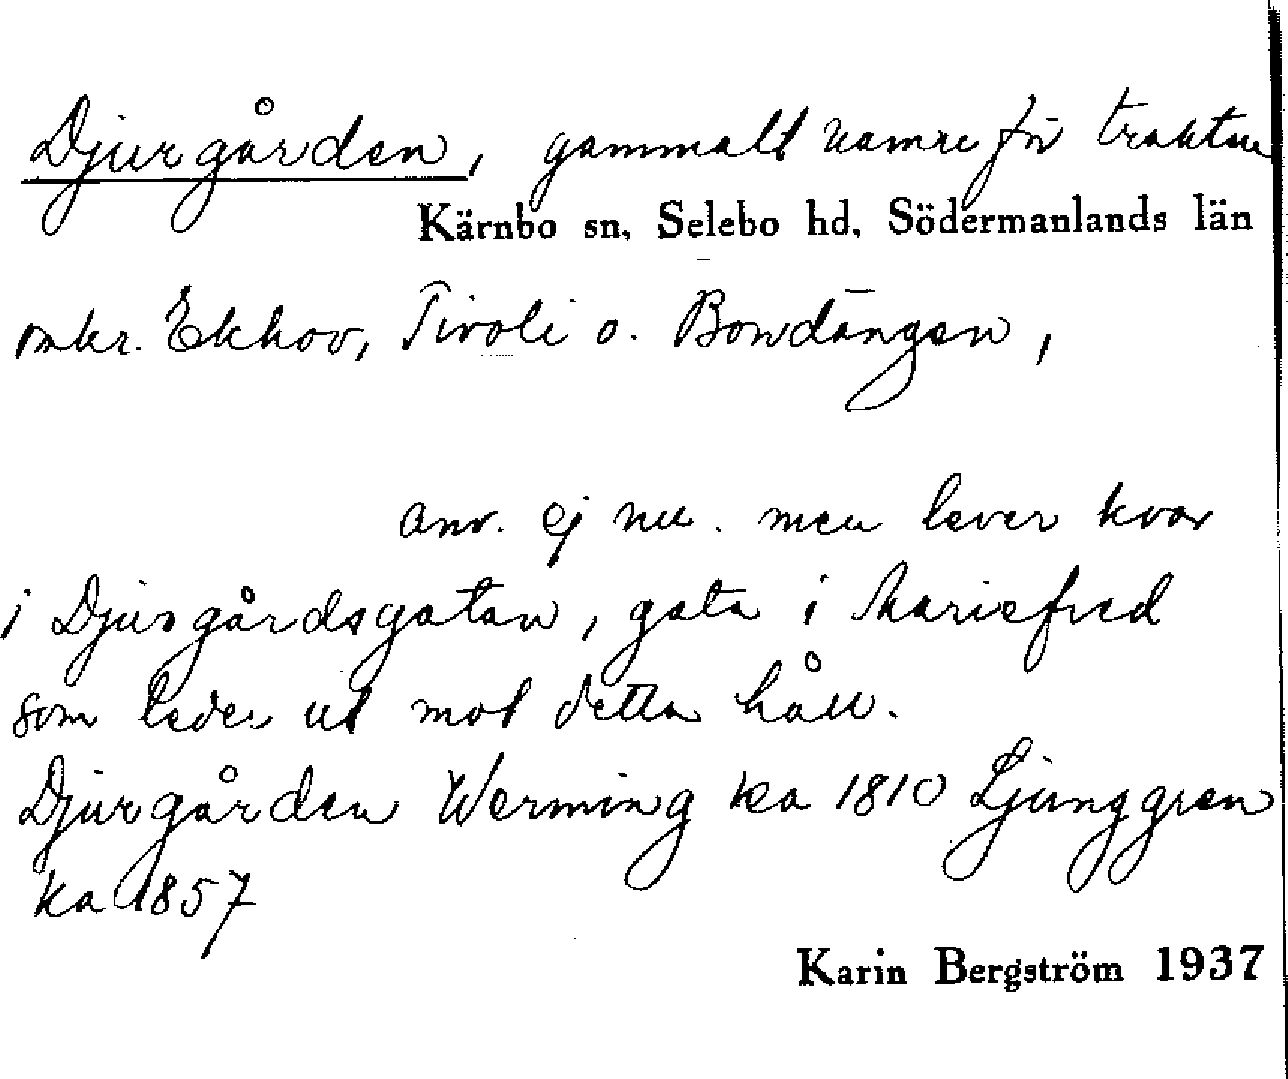 Djurgården, gammalt namn för trakten
Kärnbo sn, Selebo hd, Södermanlands län
omkr. Ekhov, Tivoli o. Bondängen,
anv. ej nu. men lever kvar
i Djurgårdsgatan, gata i Mariefred
som leder ut mot detta håll.
Djurgården Werming ka 1810 Ljunggren
ka 1857
Karin Bergström 1937